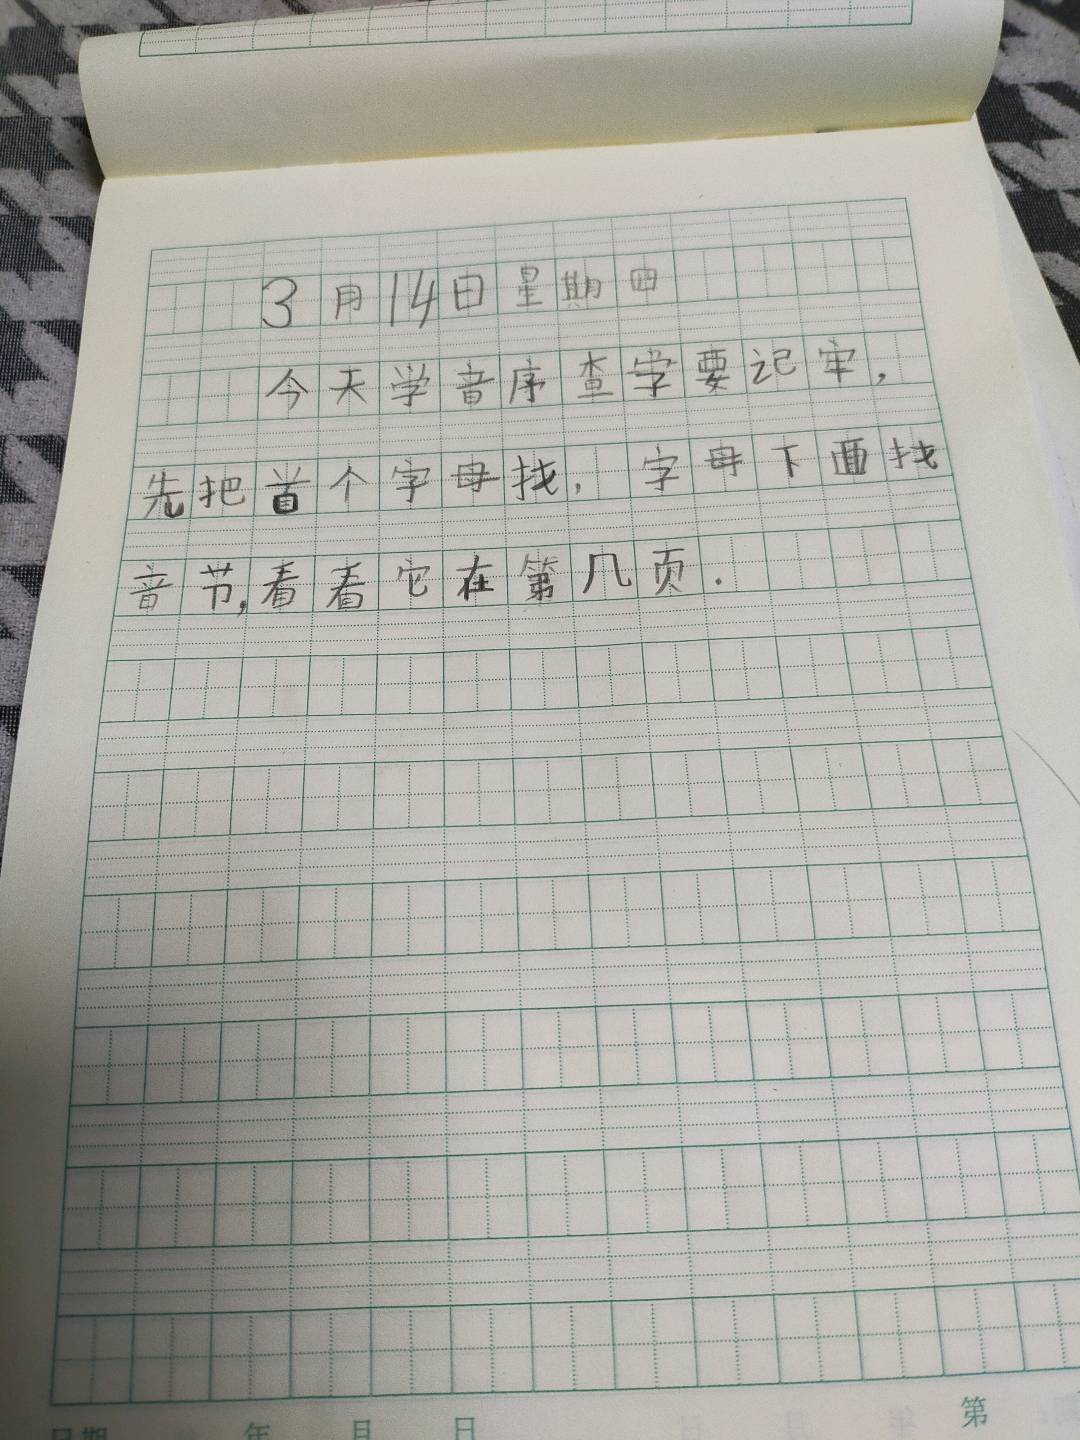 3月14日星期四
今天学音序查学要记牢，
先把首个字母找，字母下面找
音节，看看它在第几页.
日期 年 月 日 第